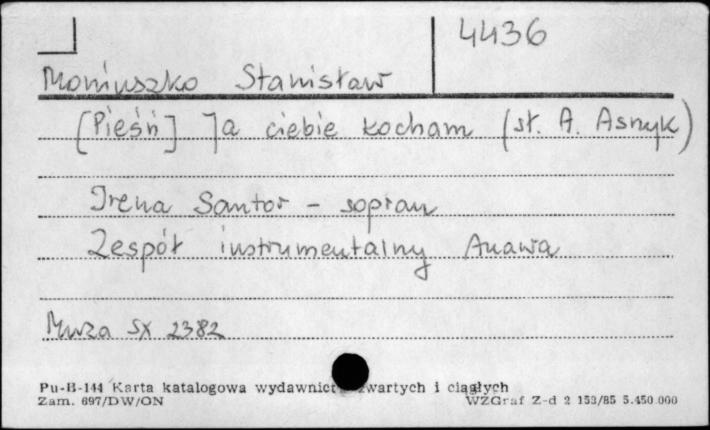 4436
Moniuszko Stanisław
[Pieśń] Ja ciebie kocham (sł. A. Asnyk)
Irena Santor - sopran
Zespół instrumentalny Anawa
Muza SX 2382
Pu-B-144 Karta katalogowa wydawnict zwartych i ciągłych
Zam. 697/DW/ON WZGraf Z-d 2 153/85 5.450.000